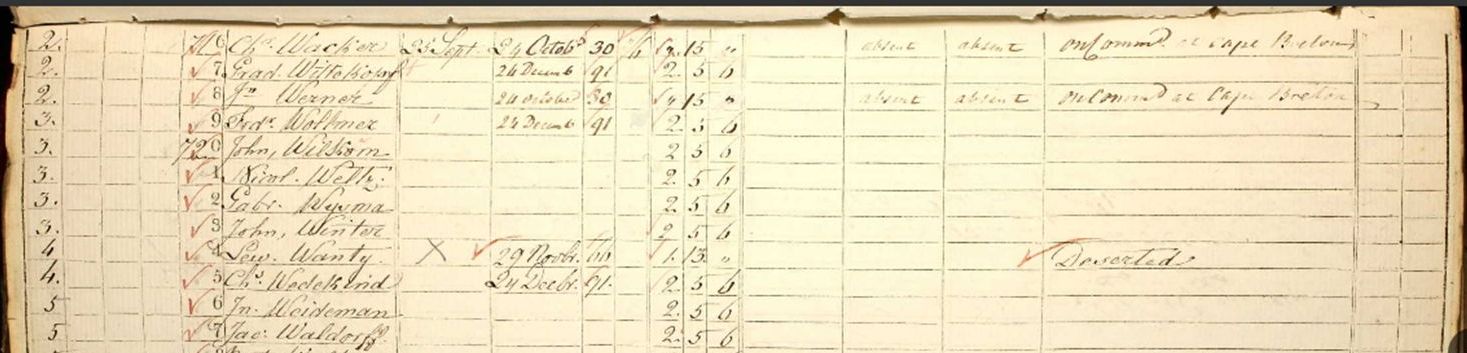 2. 716 Chs. Wacker 25 Sept. 24 Octobr 30 15 " absent absent on Commd. at Cape Breton
2. 7 Grad. Wittekopf 24 Decemb 91 2. 5 6
2. 8 Jn. Werner 24 October 30 15 " absent absent on Commd at Cape Breton
3. 9 Fredr. Woltmer 24 Decemb 91 2. 5 6
3. 720 John, Wilkom 2 5 6
3. 1 Nicol. Weltz. 2. 5 6
3. 2 Gabr. Wysma 2. 5 6
3. 3 John, Winter 2 5 6
4 4 Lew. Wanty. X 29 Novbr. 66 1. 13. " Deserted
4. 5 Chs. Wedekind 24 Decbr. 91. 2. 5 6
5 6 Jn. Weideman 2. 5 6
5 7 Jac. Waldorff 2. 5 6